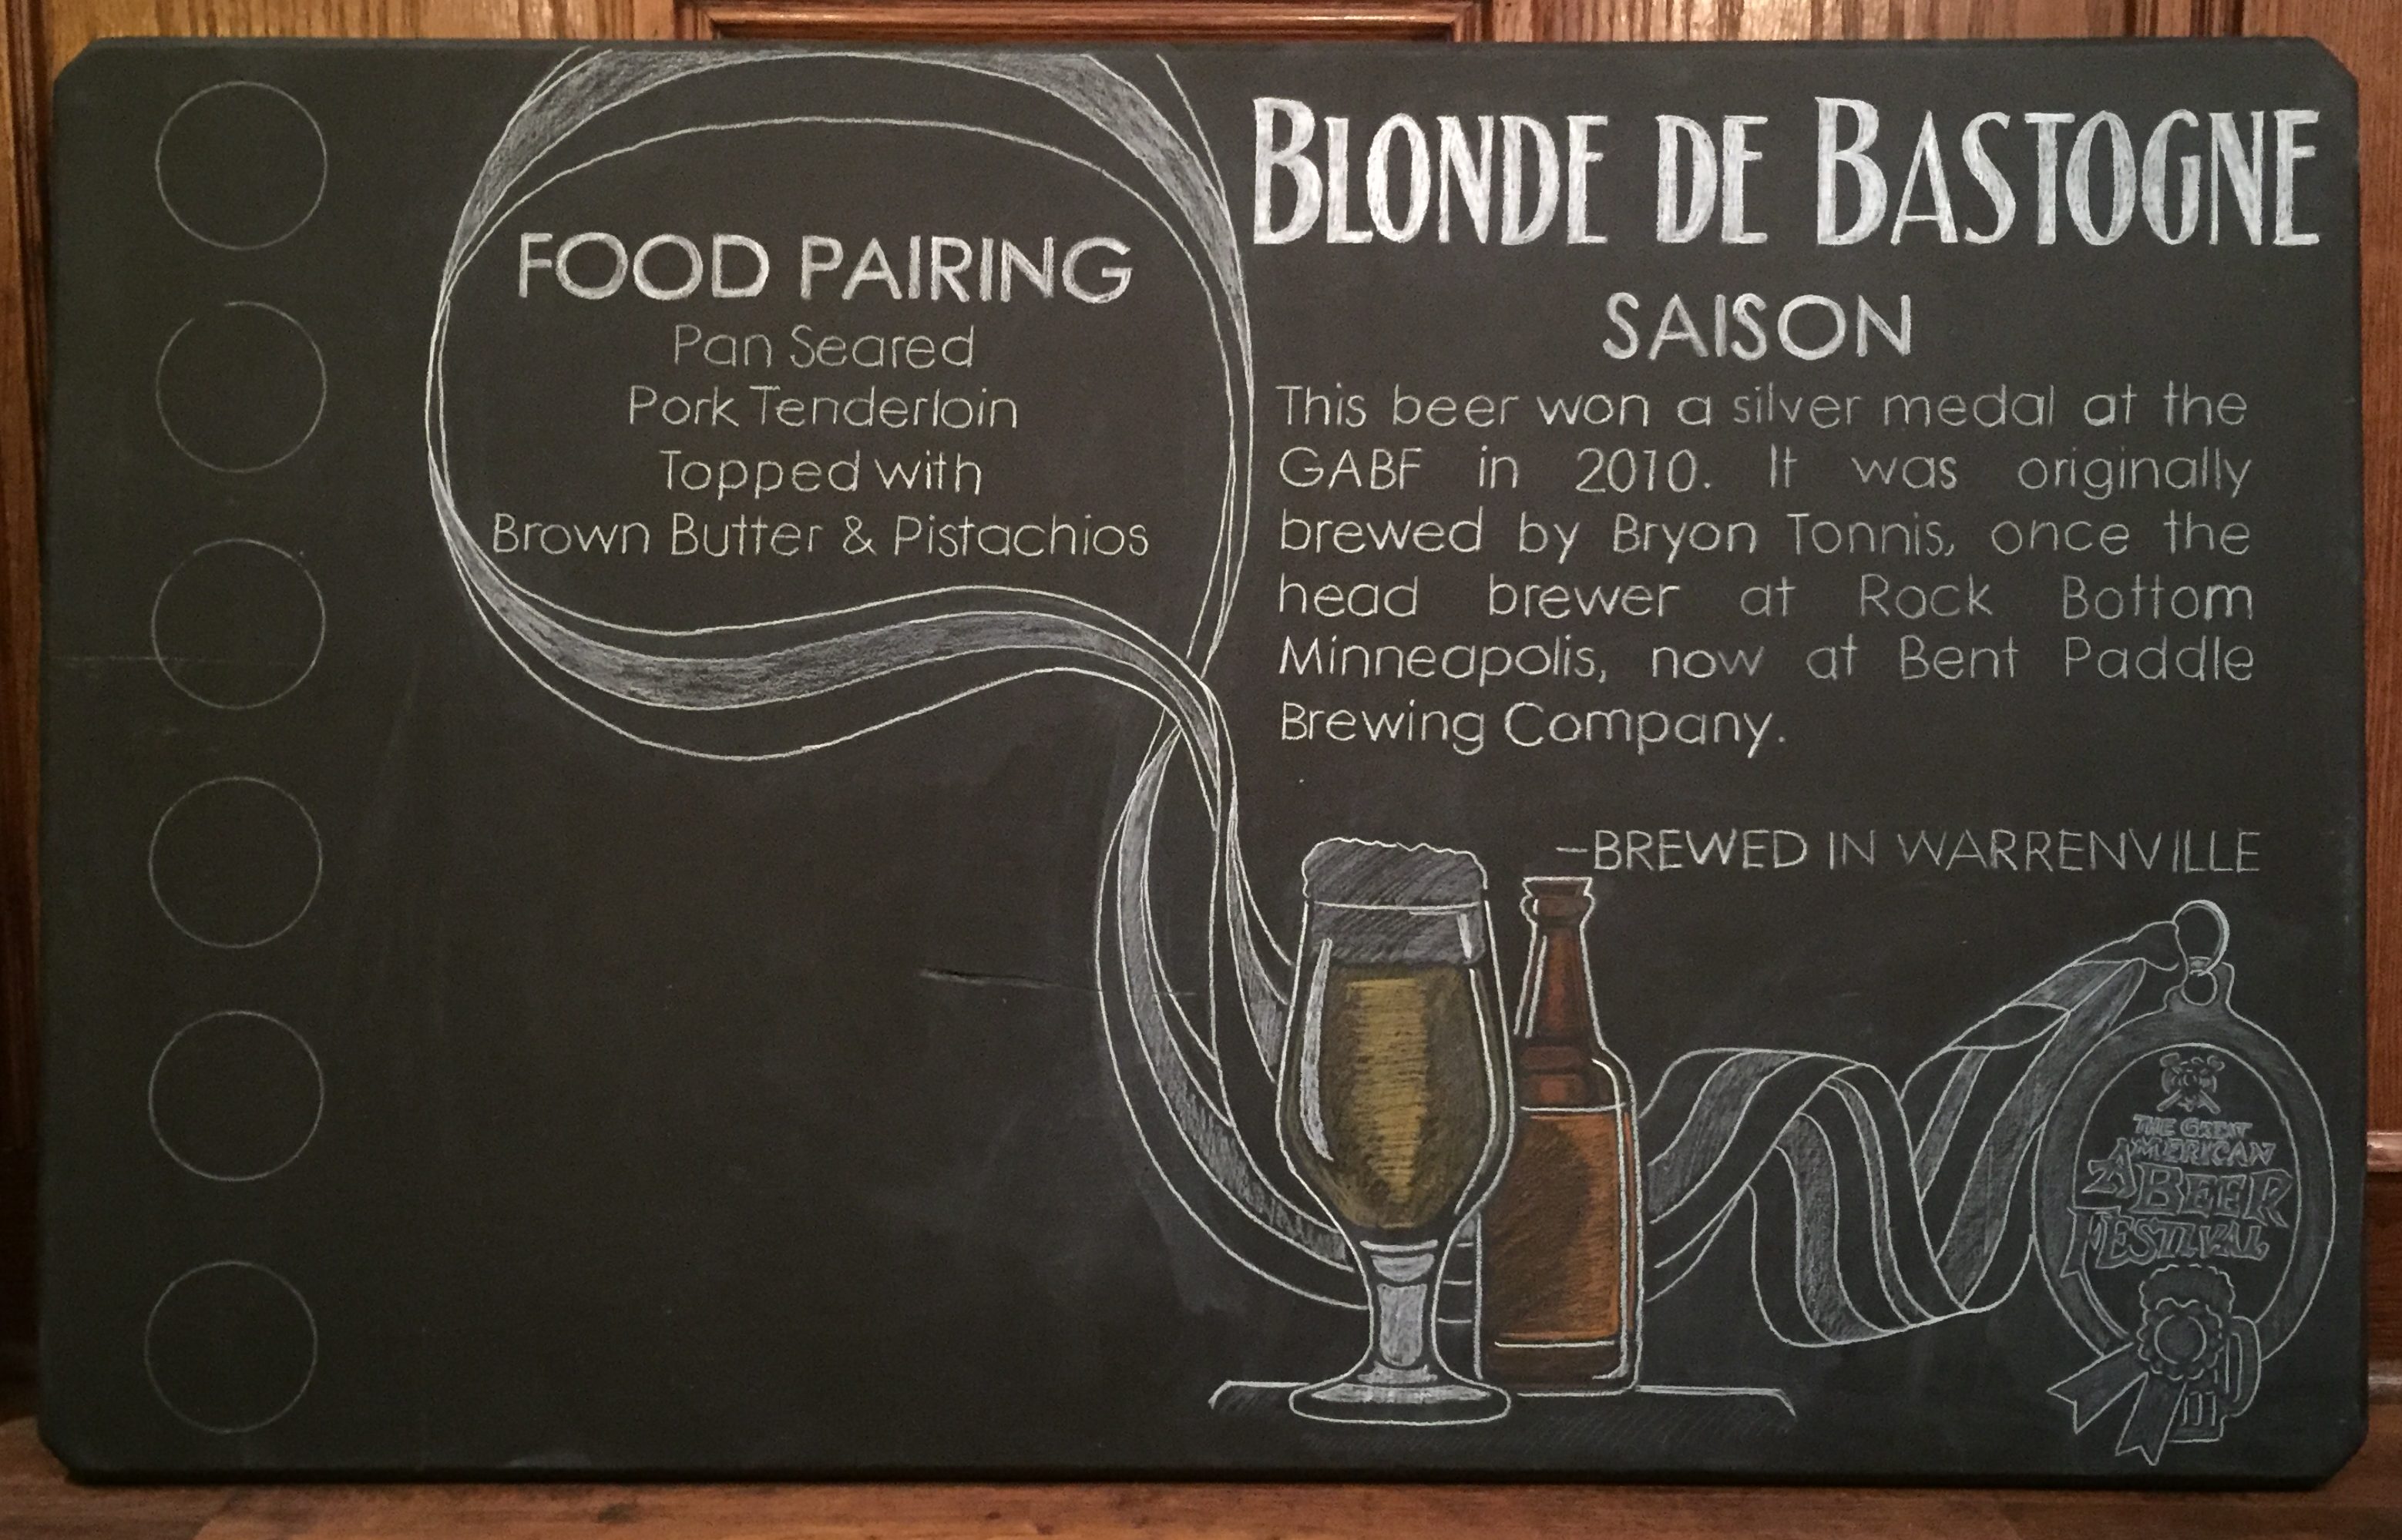 FOOD PAIRING
Pan Seared
Pork Tenderloin
Topped with
Brown Butter & Pistachios
BLONDE DE BASTOGNE
SAISON
This beer won a silver medal at the
GABF in 2010. It was originally
brewed by Bryon Tonnis, once the
head brewer at Rock Bottom
Minneapolis, now at Bent Paddle
Brewing Company.
–BREWED IN WARRENVILLE
THE GREAT
AMERICAN
BEER
FESTIVAL